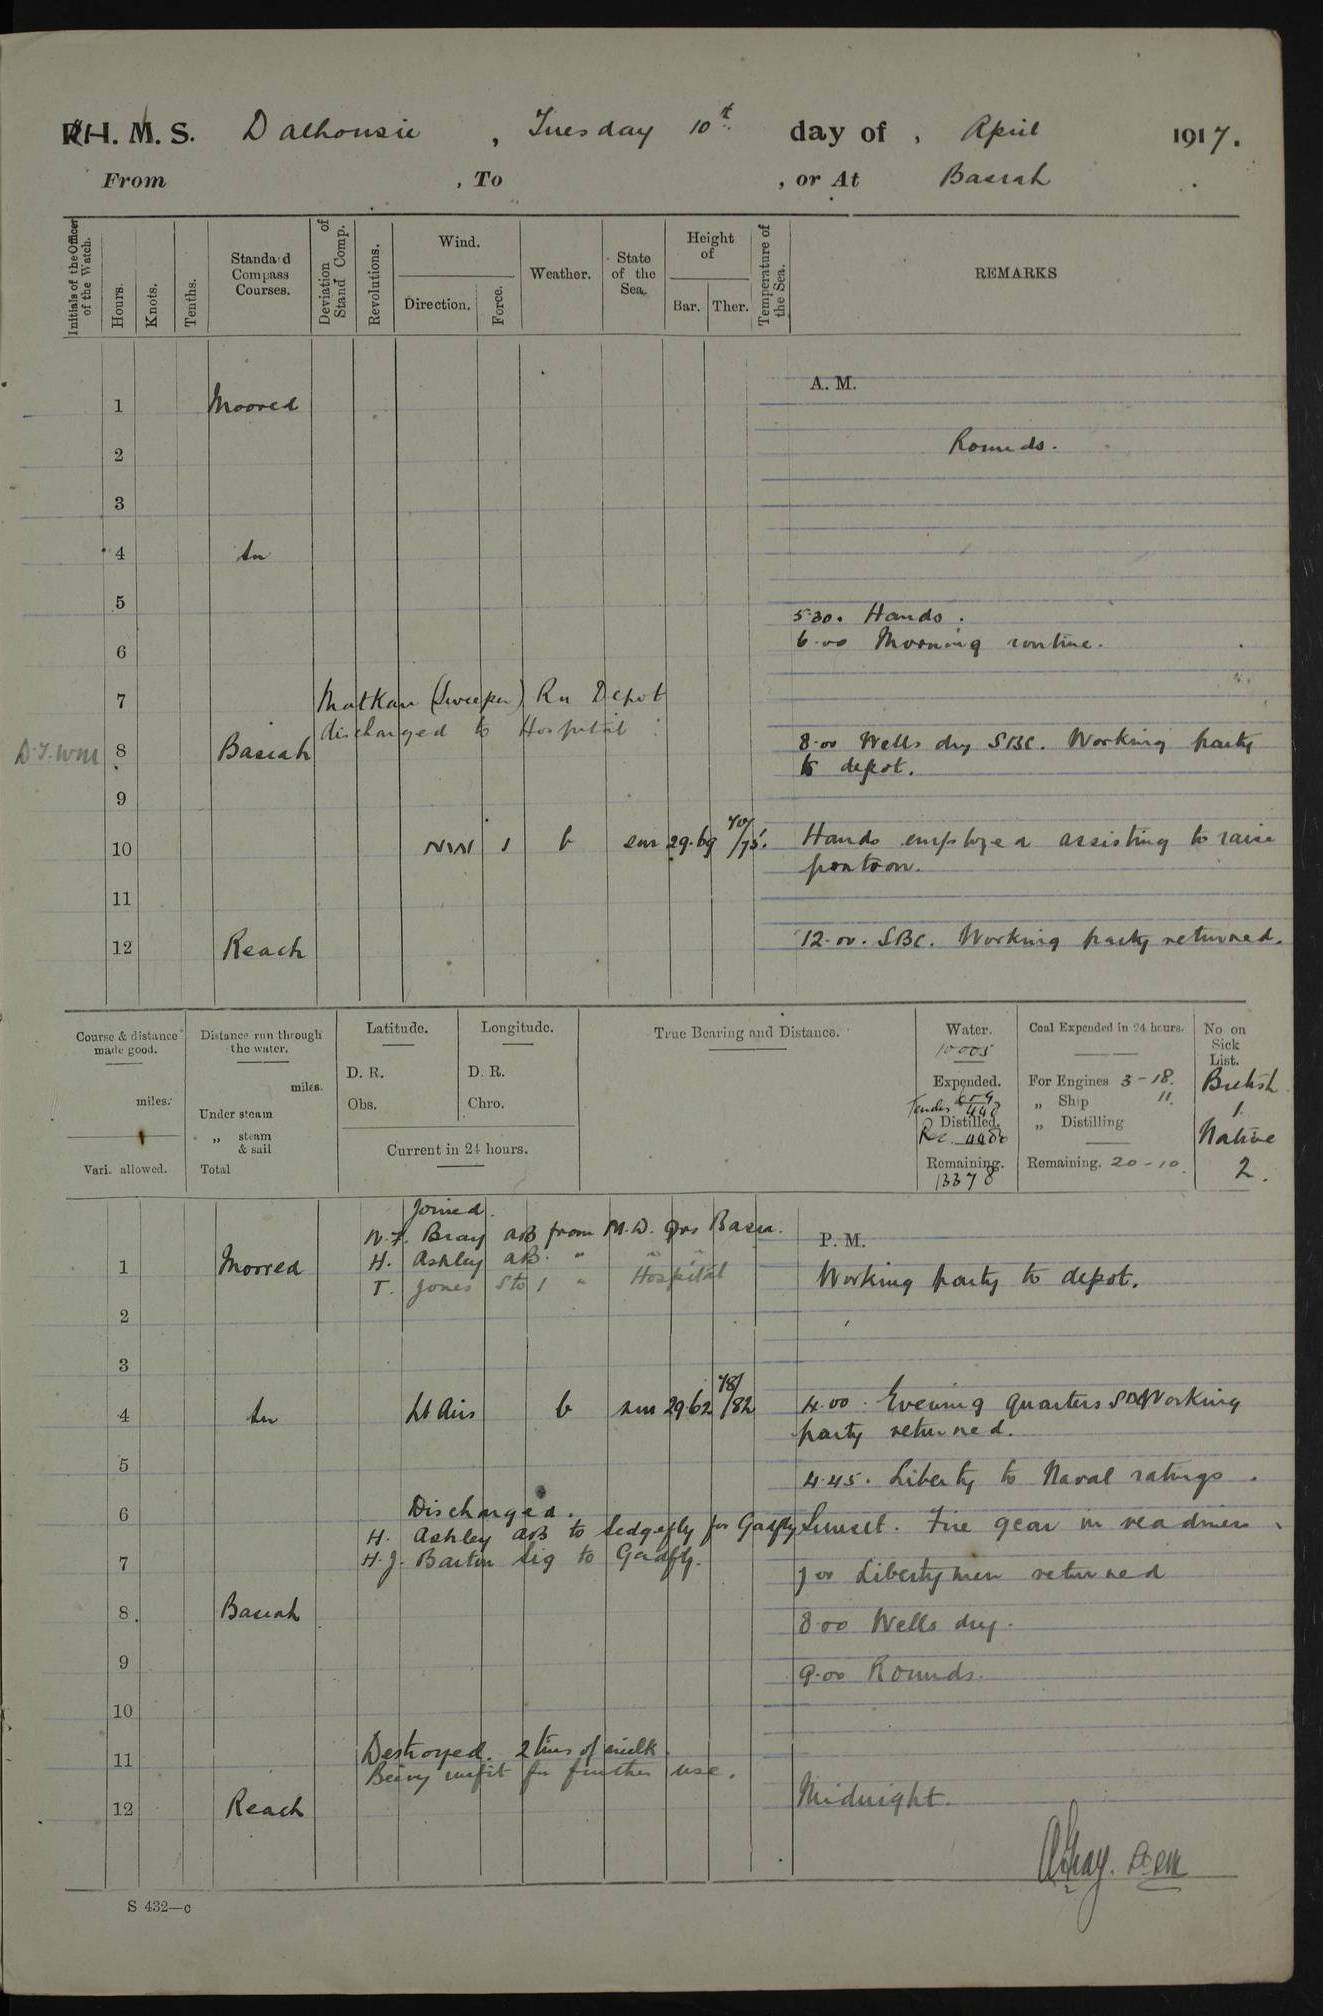 R.H.M.S. Dalhousie, Tuesday 10th day of, April 1917.
From , To , or At Basrah
Initials of the Officer of the Watch.
Hours.
Knots.
Tenths.
Standard Compass Courses.
Deviation of Stand Comp.
Revolutions.
Wind.
Direction.
Force.
Weather.
State of the Sea.
Height of
Bar.
Ther.
Temperature of the Sea.
REMARKS
A. M.
1 Moored
Rounds.
2
3
4 In
5
5.30. Hands.
6.00 Morning routine.
6
7 Matkan (Sweeper) RN Depot
discharged to Hospital
8 Basrah 8.00 Wells dry SBC. Working party
to depot.
9
10 NW 1 b sm 29.69 70/75. Hands employed assisting to raise
pontoon.
11
12 Reach 12.00. SBC. Working party returned.
Course & distance made good.
miles.
Vari. allowed.
Distance run through the water.
miles.
Under steam
„ steam & sail
Total
Latitude.
D. R.
Obs.
Longitude.
D. R.
Chro.
Current in 24 hours.
True Bearing and Distance.
Water.
10005
Expended.
Tender
Distilled.
Rec.
Remaining.
13378
Coal Expended in 24 hours.
For Engines 3-18.
„ Ship 11.
„ Distilling
Remaining. 20-10.
No on Sick List.
British
1.
Native
2.
Joined.
N.F. Bray AB from M.D. Qrs Basra.
P. M.
H. Ashley AB. " " "
1 Moored Working party to depot.
T. Jones Sto 1 " Hospital
2
3
4 In Lt Airs b sm 29.62 78/82 4.00. Evening quarters Working
party returned.
5
4.45. Liberty to Naval ratings.
Discharged.
6
H. Ashley AB to Sedgefly for Gadfly Sunset. Fire gear in readiness.
H.J. Barton Sig to Gadfly.
7
7.00 Liberty men returned
8. Basrah 8.00 Wells dry.
9 9.00 Rounds.
10
Destroyed. 2 tins of milk
11
Being unfit for further use.
12 Reach Midnight.
S 432—c